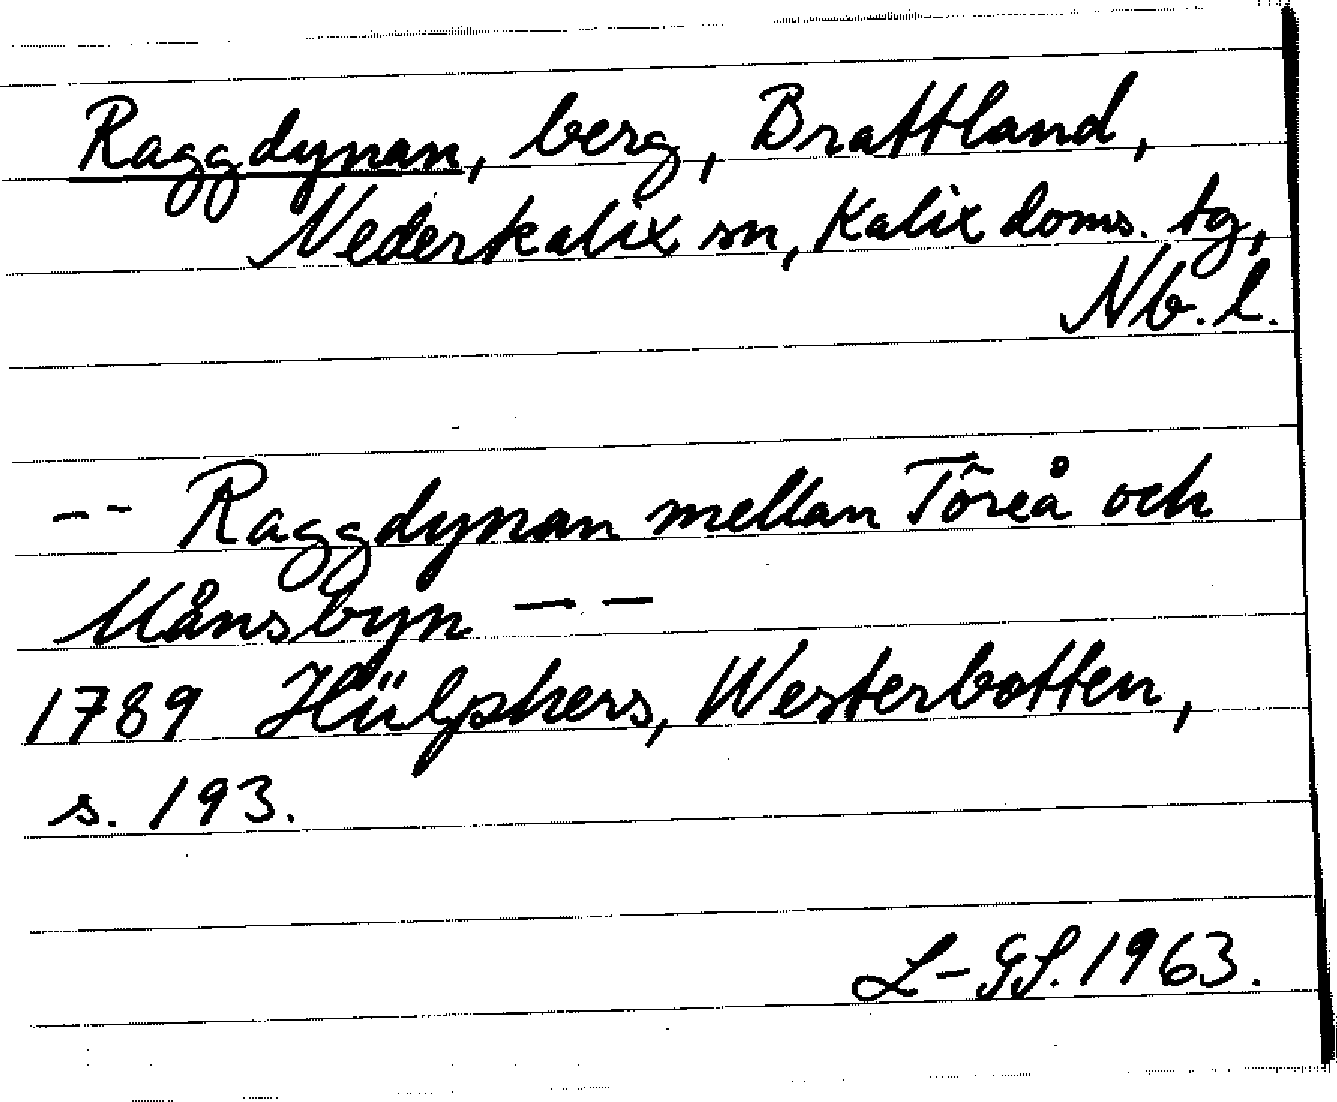 Raggdynan, berg, Brattland,
Nederkalix sn, Kalix doms. tg,
Nb. l.
-- Raggdynan mellan Töreå och
Månsbyn --
1789 Hülphers, Westerbotten,
s. 193.
L-GS. 1963.